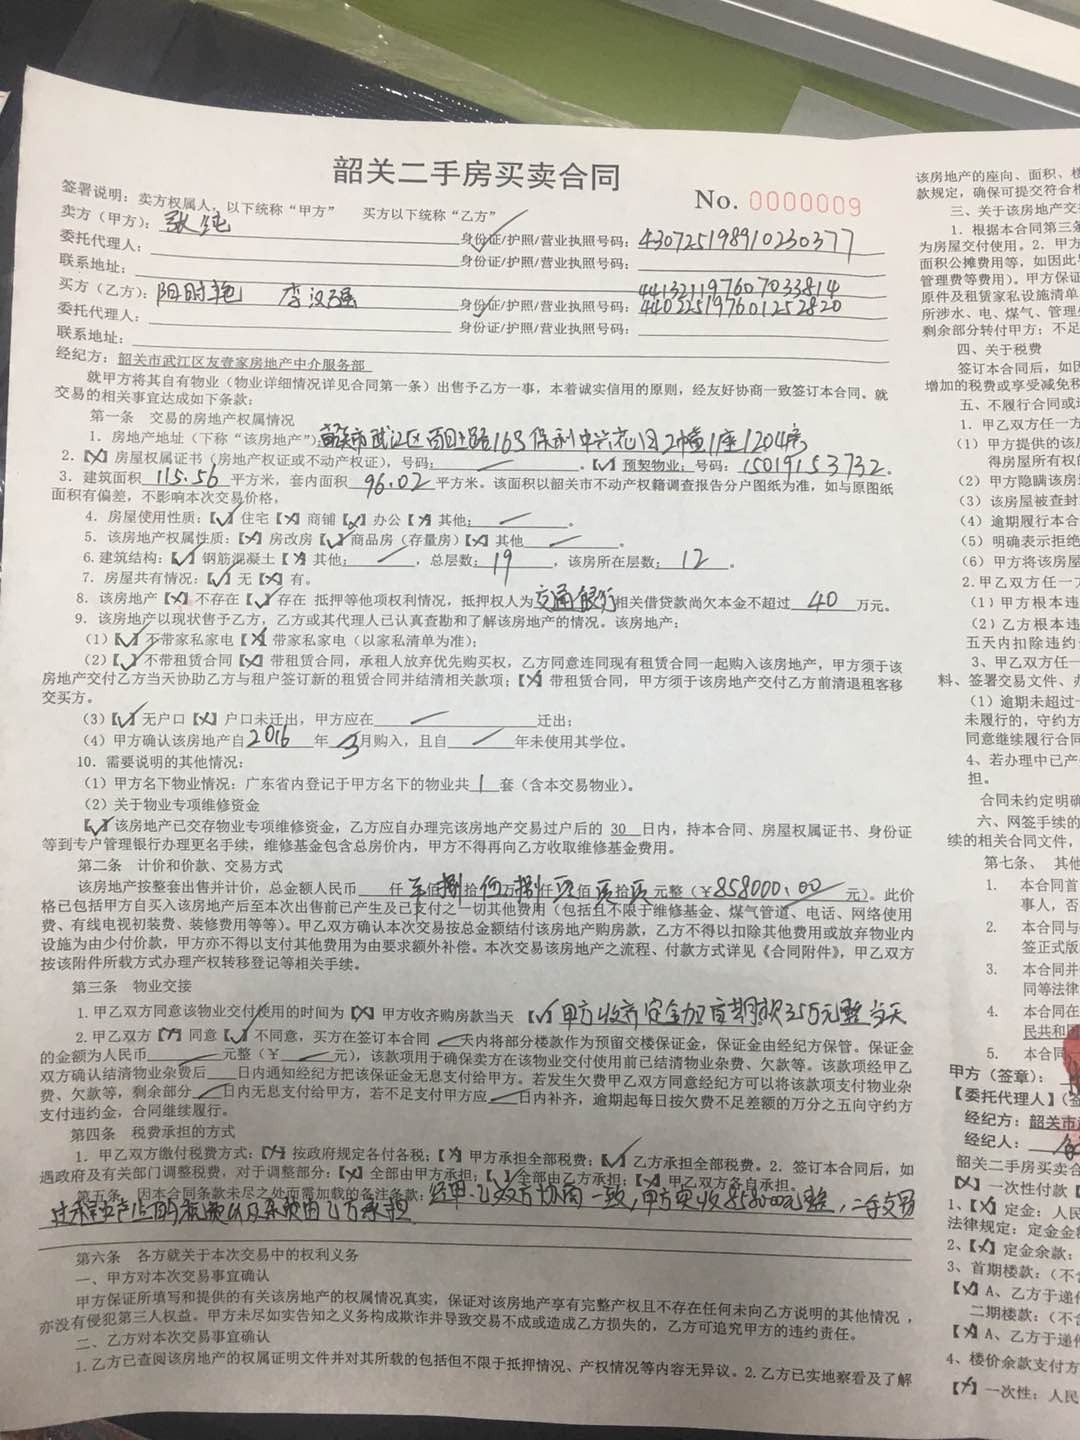 韶关二手房买卖合同
No. 0000009
签署说明：卖方权属人，以下统称“甲方” 买方以下统称“乙方”
卖方（甲方）：张纯 身份证/护照/营业执照号码：430725198910230377
委托代理人： 身份证/护照/营业执照号码：
联系地址： 441321197607033814
买方（乙方）：阳时艳 李汉强 身份证/护照/营业执照号码：440225197601252820
委托代理人： 身份证/护照/营业执照号码：
联系地址：
经纪方：韶关市武江区友壹家房地产中介服务部
就甲方将其自有物业（物业详细情况详见合同第一条）出售予乙方一事，本着诚实信用的原则，经友好协商一致签订本合同。就
交易的相关事宜达成如下条款：
第一条 交易的房地产权属情况
1．房地产地址（下称“该房地产”）：韶关市武江区百旺路16号保利中兴花园2幢1座1204房
2．【X】房屋权属证书（房地产权证或不动产权证），号码： 。【√】预契物业：号码：15019153732．
3．建筑面积 115.56 平方米，套内面积 96.02 平方米。该面积以韶关市不动产权籍调查报告分户图纸为准，如与原图纸
面积有偏差，不影响本次交易价格，
4．房屋使用性质：【√】住宅【X】商铺【X】办公【X】其他： 。
5．该房地产权属性质：【X】房改房【√】商品房（存量房）【X】其他 。
6.建筑结构：【√】钢筋混凝土【X】其他： ，总层数：19 ，该房所在层数：12 。
7．房屋共有情况：【√】无【X】有。
8．该房地产【X】不存在【√】存在 抵押等他项权利情况，抵押权人为交通银行相关借贷款尚欠本金不超过 40 万元。
9．该房地产以现状售予乙方，乙方或其代理人已认真查勘和了解该房地产的情况。该房地产：
（1）【√】不带家私家电【X】带家私家电（以家私清单为准）；
（2）【√】不带租赁合同【X】带租赁合同，承租人放弃优先购买权，乙方同意连同现有租赁合同一起购入该房地产，甲方须于该
房地产交付乙方当天协助乙方与租户签订新的租赁合同并结清相关款项；【X】带租赁合同，甲方须于该房地产交付乙方前清退租客移
交买方。
（3）【√】无户口【X】户口未迁出，甲方应在 迁出；
（4）甲方确认该房地产自2016年3月购入，且自 年未使用其学位。
10．需要说明的其他情况：
（1）甲方名下物业情况：广东省内登记于甲方名下的物业共1套（含本交易物业）。
（2）关于物业专项维修资金
【√】该房地产已交存物业专项维修资金，乙方应自办理完该房地产交易过户后的 30 日内，持本合同、房屋权属证书、身份证
等到专户管理银行办理更名手续，维修基金包含总房价内，甲方不得再向乙方收取维修基金费用。
第二条 计价和价款、交易方式
该房地产按整套出售并计价，总金额人民币 仟 捌佰 伍拾 万 捌仟 零佰 零拾 零元整（￥858000.00 元）。此价
格已包括甲方自买入该房地产后至本次出售前已产生及已支付之一切其他费用（包括且不限于维修基金、煤气管道、电话、网络使用
费、有线电视初装费、装修费用等等）。甲乙双方确认本次交易按总金额结付该房地产购房款，乙方不得以扣除其他费用或放弃物业内
设施为由少付价款，甲方亦不得以支付其他费用为由要求额外补偿。本次交易该房地产之流程、付款方式详见《合同附件》，甲乙双方
按该附件所载方式办理产权转移登记等相关手续。
第三条 物业交接
1．甲乙双方同意该物业交付使用的时间为【X】甲方收齐购房款当天【√】甲方收齐定金加首期款35万元整当天
2．甲乙双方【X】同意【√】不同意，买方在签订本合同 天内将部分楼款作为预留交楼保证金，保证金由经纪方保管。保证金
的金额为人民币 元整（￥ 元），该款项用于确保卖方在该物业交付使用前已结清物业杂费、欠款等。该款项经甲乙
双方确认结清物业杂费后 日内通知经纪方把该保证金无息支付给甲方。若发生欠费甲乙双方同意经纪方可以将该款项支付物业杂
费、欠款等，剩余部分 日内无息支付给甲方，若不足支付甲方应 日内补齐，逾期起每日按欠费不足差额的万分之五向守约方
支付违约金，合同继续履行。
第四条 税费承担的方式
1．甲乙双方缴付税费方式：【X】按政府规定各付各税；【X】甲方承担全部税费；【√】乙方承担全部税费。2．签订本合同后，如
遇政府及有关部门调整税费，对于调整部分：【X】全部由甲方承担；【√】全部由乙方承担；【X】甲乙双方各自承担。
第五条 因本合同条款未尽之处而需加载的备注条款：经甲、乙双方协商一致，甲方实收858000元整，二手交易
过程产生的税费以及杂款由乙方承担
第六条 各方就关于本次交易中的权利义务
一、甲方对本次交易事宜确认
甲方保证所填写和提供的有关该房地产的权属情况真实，保证对该房地产享有完整产权且不存在任何未向乙方说明的其他情况，
亦没有侵犯第三人权益。甲方未尽如实告知之义务构成欺诈并导致交易不成或造成乙方损失的，乙方可追究甲方的违约责任。
二、乙方对本次交易事宜确认
1.乙方已查阅该房地产的权属证明文件并对其所载的包括但不限于抵押情况、产权情况等内容无异议。2.乙方已实地察看及了解
该房地产的座向、面积、楼
款规定，确保可提交符合相
三、关于该房地产交
1．根据本合同第三条
为房屋交付使用。2．甲方
面积公摊费用等，如因此
管理费等费用）。甲方保证
原件及租赁家私设施清单
所涉水、电、煤气、管理
剩余部分转付甲方；不足
四、关于税费
签订本合同后，如因
增加的税费或享受减免税
五、不履行合同或
1．甲乙双方任一方
（1）甲方提供的该
得房屋所有权的
（2）甲方隐瞒该房
（3）该房屋被查封
（4）逾期履行本合
（5）明确表示拒绝
（6）甲方将该房屋
2．甲乙双方任一方
（1）甲方根本违
（2）乙方根本违
五天内扣除违约
3、甲乙双方任一
料、签署交易文件、办
（1）逾期未超过十
未履行的，守约方
同意继续履行合同
4、若办理中已产
担。
合同未约定明确
六、网签手续的
续的相关合同文件，
第七条、 其他
1． 本合同首
事人，否
2． 本合同与
签正式版
3． 本合同并
同等法律
4． 本合同在
民共和国
5． 本合同
甲方（签章）：
【委托代理人】（签
经纪方：韶关市
经纪人：
韶关二手房买卖合
【X】一次性付款【
1、【X】定金：人民
法律规定：定金金额
2、【X】定金余款：
3、首期楼款：（不含
【X】A、乙方于递件
二期楼款：（不含
【X】A、乙方于递件
4、楼价余款支付方
【X】一次性：人民